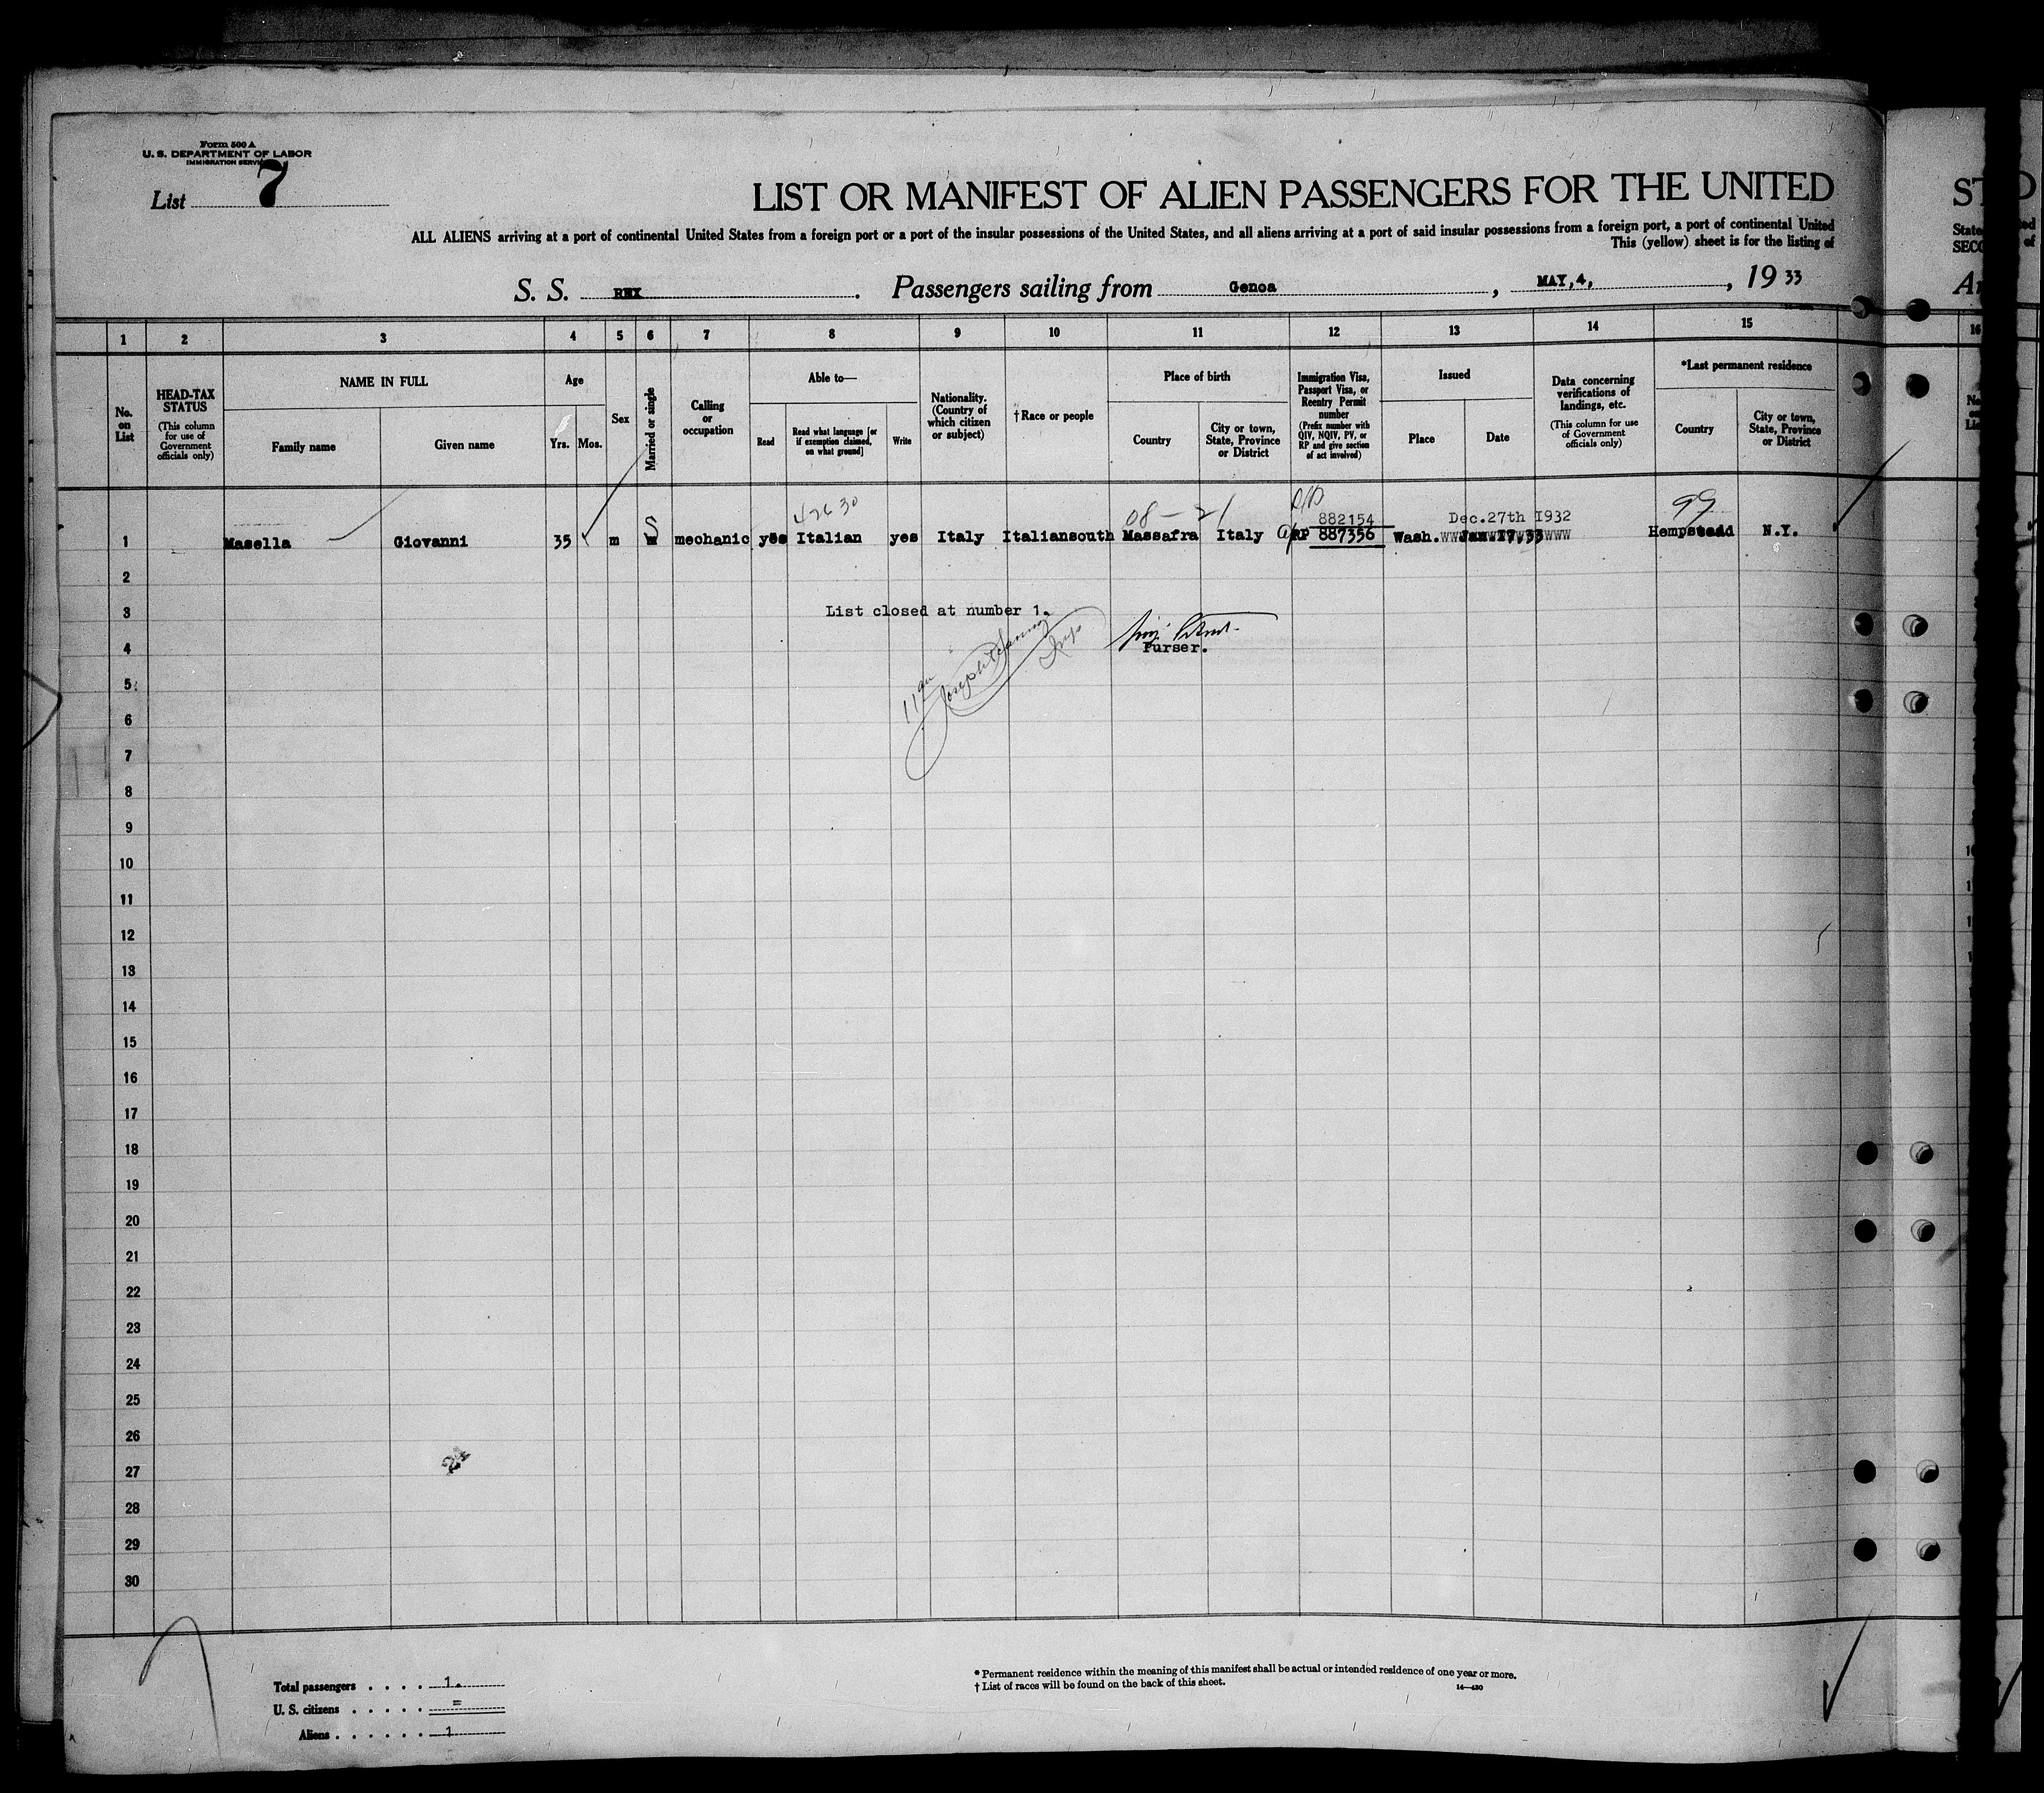 Form 500 A
U. S. DEPARTMENT OF LABOR
IMMIGRATION SERVICE
List 7
LIST OR MANIFEST OF ALIEN PASSENGERS FOR THE UNITED
ALL ALIENS arriving at a port of continental United States from a foreign port or a port of the insular possessions of the United States, and all aliens arriving at a port of said insular possessions from a foreign port, a port of continental United
This (yellow) sheet is for the listing of
S. S. REX. Passengers sailing from Genoa, MAY,4,, 19 33
1 2 3 4 5 6 7 8 9 10 11 12 13 14 15
No. on List
HEAD-TAX STATUS
(This column for use of Government officials only)
NAME IN FULL
Family name
Given name
Age
Yrs. Mos.
Sex
Married or single
Calling or occupation
Able to—
Read
Read what language [or if exemption claimed, on what ground]
Write
Nationality. (Country of which citizen or subject)
† Race or people
Place of birth
Country
City or town, State, Province or District
Immigration Visa, Passport Visa, or Reentry Permit number
(Prefix number with QIV, NQIV, PV, or RP and give section of act involved)
Issued
Place
Date
Data concerning verifications of landings, etc.
(This column for use of Government officials only)
*Last permanent residence
Country
City or town, State, Province or District
42630
08-21
99
882154 Dec.27th I932
1 Masella Giovanni 35 m S mechanic yes Italian yes Italy Italiansouth Massafra Italy RP 887356 Wash. Hempstead N.Y.
2
3 List closed at number 1.
4 Purser.
5
6
7
8
9
10
11
12
13
14
15
16
17
18
19
20
21
22
23
24
25
26
27
28
29
30
Total passengers . . . . 1.
U. S. citizens . . . . . =
Aliens . . . . . . 1
* Permanent residence within the meaning of this manifest shall be actual or intended residence of one year or more.
† List of races will be found on the back of this sheet.
14—430